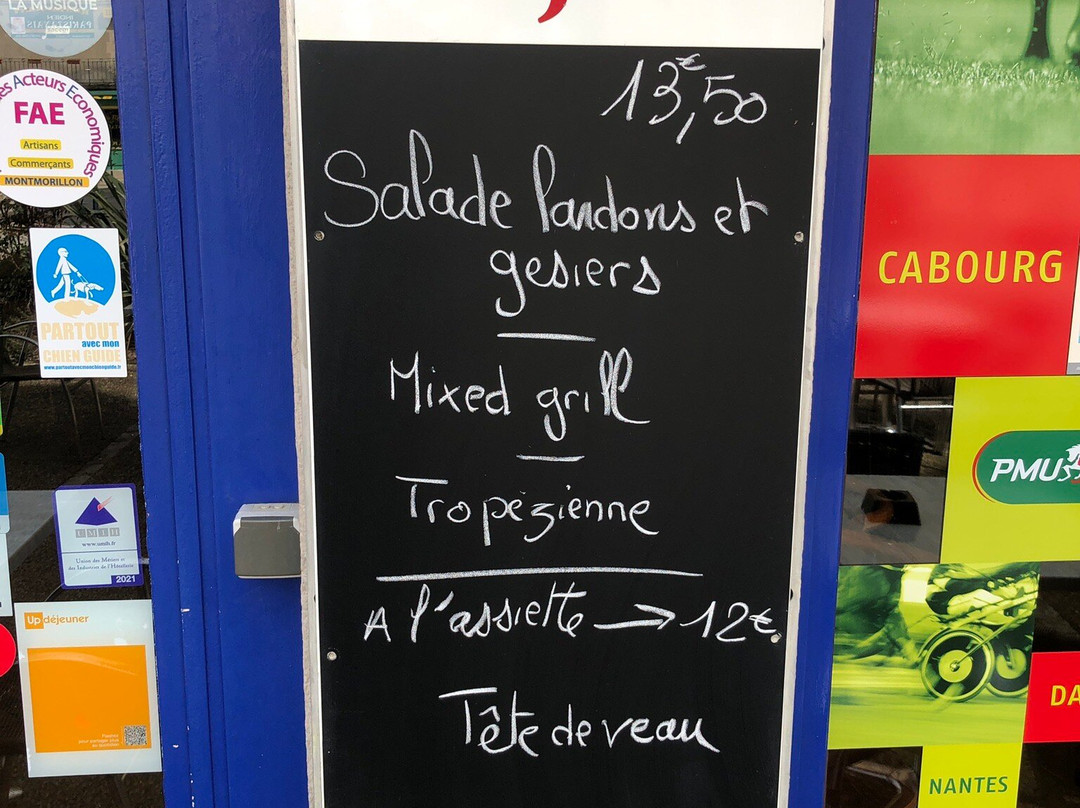 LA MUSIQUE
es Acteurs Economiques
FAE
Artisans
Commerçants
MONTMORILLON
PARTOUT
avec mon
CHIEN GUIDE
www.partoutavecmonchienguide.fr
UMIH
www.umih.fr
Union des Métiers et
des Industries de l'Hôtellerie
2021
Up déjeuner
13,50€
Salade lardons et
gesiers
Mixed grill
Tropézienne
A l'assiette → 12€
Tête de veau
CABOURG
PMU
DA
NANTES